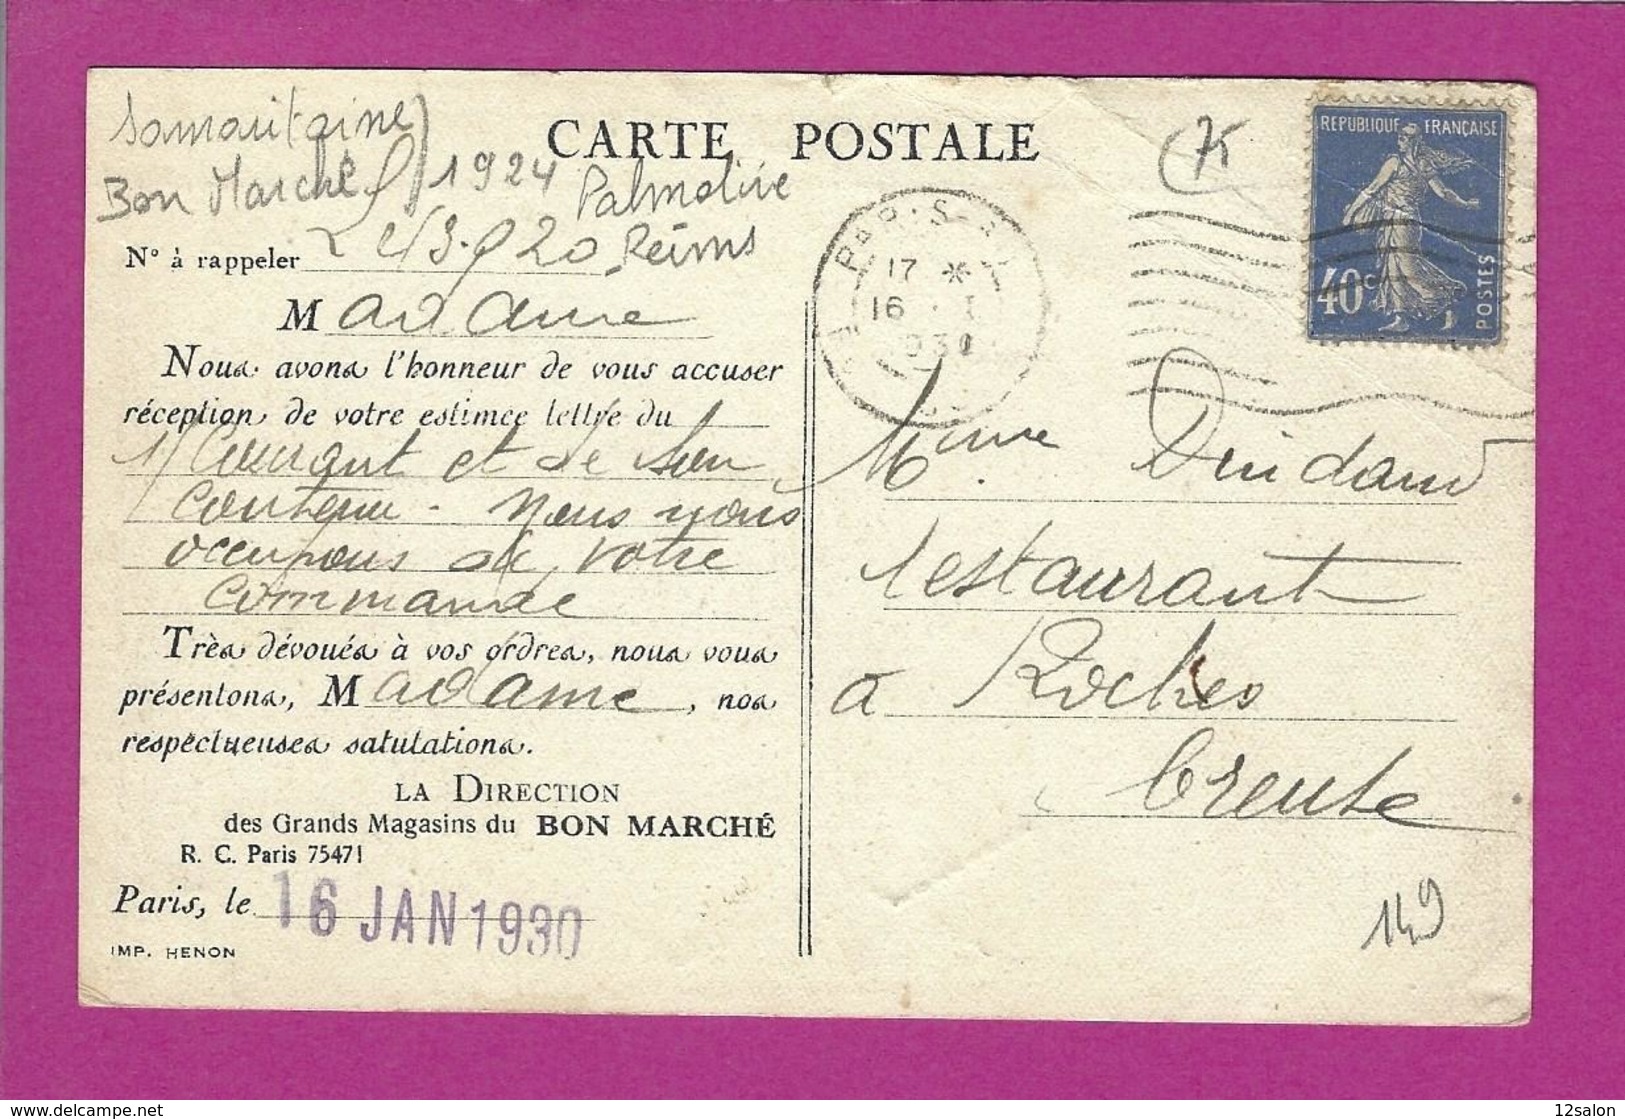 Samaritaine
Bon Marché 1924 Palmolive
CARTE POSTALE
Reims
N° à rappeler
Madame
Nous avons l'honneur de vous accuser
réception de votre estimée lettre du
Courant et de son
contenu - Nous nous
occupons de votre
commande
Très dévoués à vos ordres, nous vous
présentons, Madame, nos
respectueuses salutations.
LA DIRECTION
des Grands Magasins du BON MARCHÉ
R. C. Paris 75471
Paris, le 16 JAN 1930
IMP. HENON
75
REPUBLIQUE FRANÇAISE
40c
POSTES
PARIS
17 *
16 I
1930
Mme
restaurant
à Roches
Creuse
149
12salon